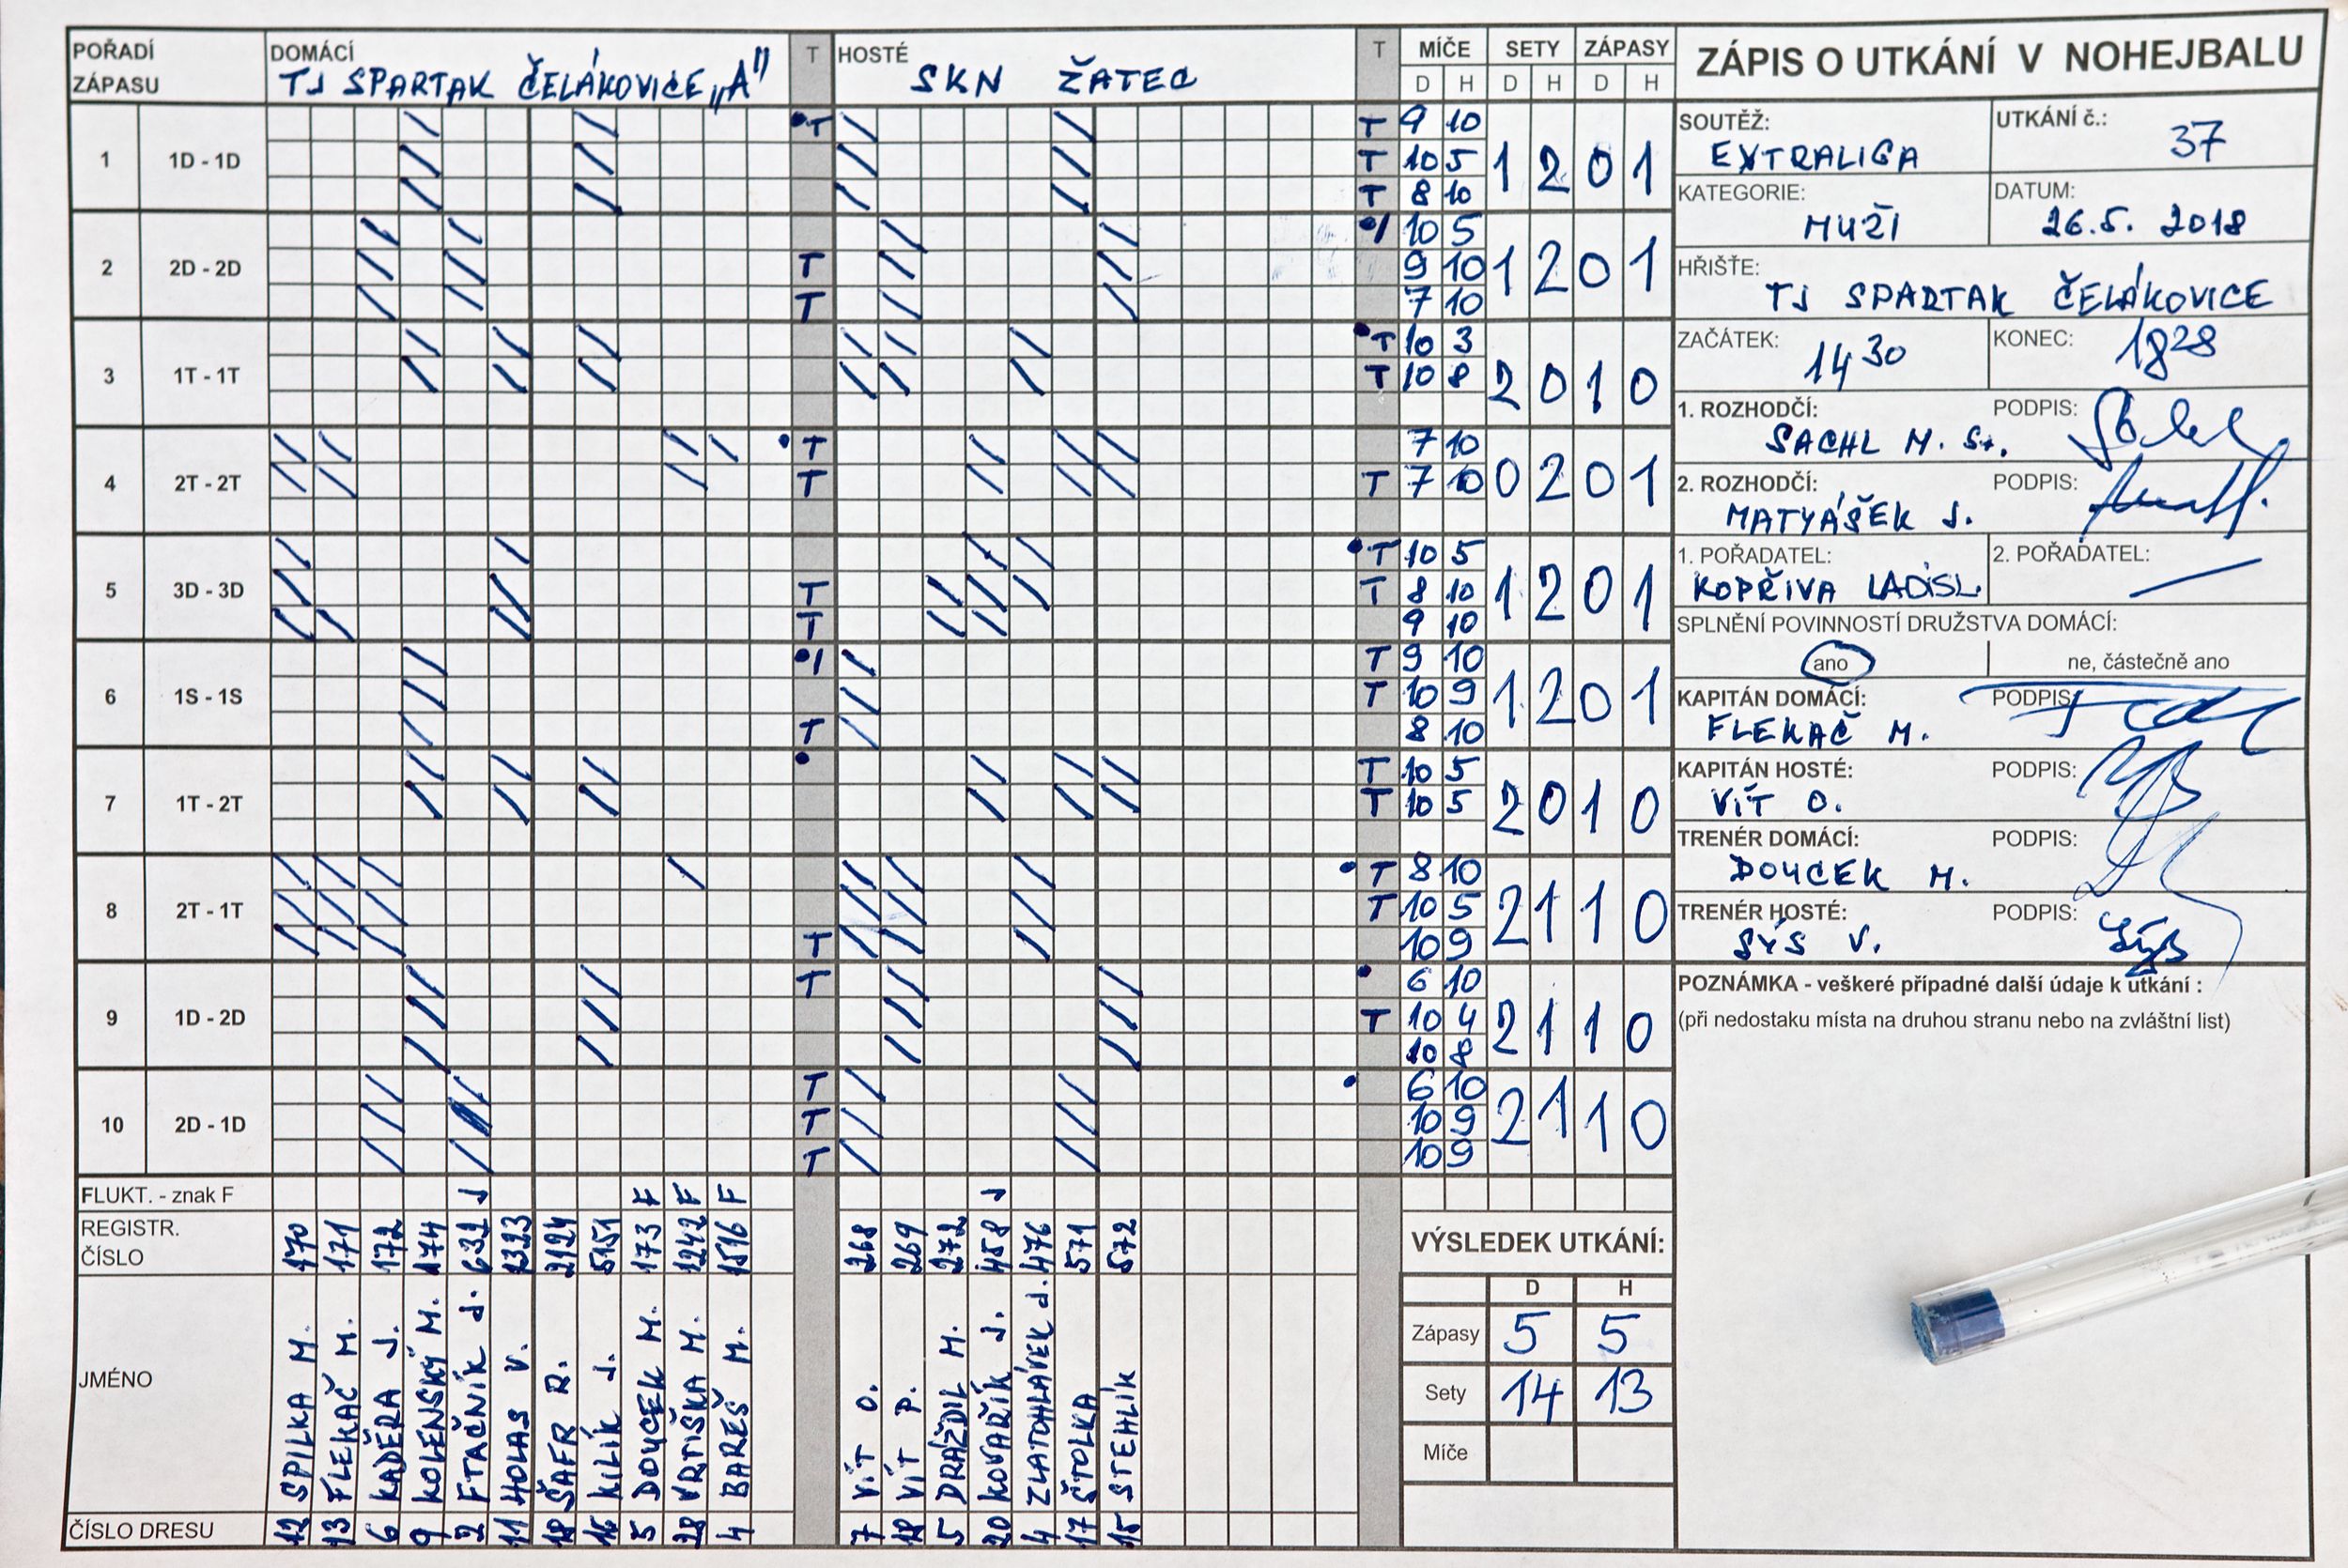 POŘADÍ ZÁPASU DOMÁCÍ T HOSTÉ T MÍČE SETY ZÁPASY
TJ SPARTAK ČELÁKOVICE „A" SKN ŽATEC D H D H D H
1 1D - 1D T T 9 10
T 10 5 1 2 0 1
T 8 10
2 2D - 2D 10 5
T 9 10 1 2 0 1
T 7 10
3 1T - 1T T 10 3
T 10 8 2 0 1 0
4 2T - 2T T 7 10
T T 7 10 0 2 0 1
5 3D - 3D T 10 5
T T 8 10 1 2 0 1
T 9 10
6 1S - 1S T 9 10
T 10 9 1 2 0 1
T 8 10
7 1T - 2T T 10 5
T 10 5 2 0 1 0
8 2T - 1T T 8 10
T 10 5 2 1 1 0
T 10 9
9 1D - 2D T 6 10
T 10 4 2 1 1 0
10 8
10 2D - 1D T 6 10
T 10 9 2 1 1 0
T 10 9
FLUKT. - znak F J F F F J
REGISTR. ČÍSLO 170 171 172 174 632 1323 2124 5151 173 1242 1516 268 269 272 458 476 571 572
JMÉNO
SPILKA M.
FLEKAČ M.
KADĚRA J.
KOLENSKÝ M.
FTAČNÍK J.
HOLAS V.
ŠAFR R.
KILÍK J.
DOUCEK M.
VRTIŠKA M.
BAREŠ M.
VÍT O.
VÍT P.
DRAŽDIL M.
KOVAŘÍK J.
ZLATOHLÁVEK J.
ŠTOLKA
STEHLÍK
ČÍSLO DRESU 12 13 6 9 2 11 18 16 5 28 4 7 18 5 20 4 17 15
VÝSLEDEK UTKÁNÍ:
D H
Zápasy 5 5
Sety 14 13
Míče
ZÁPIS O UTKÁNÍ V NOHEJBALU
SOUTĚŽ: UTKÁNÍ č.:
EXTRALIGA 37
KATEGORIE: DATUM:
MUŽI 26.5. 2018
HŘIŠTĚ:
TJ SPARTAK ČELÁKOVICE
ZAČÁTEK: KONEC:
14 30 18 28
1. ROZHODČÍ: PODPIS:
SACHL M. St.
2. ROZHODČÍ: PODPIS:
MATYÁŠEK J.
1. POŘADATEL: 2. POŘADATEL:
KOPŘIVA LADISL.
SPLNĚNÍ POVINNOSTÍ DRUŽSTVA DOMÁCÍ:
ano ne, částečně ano
KAPITÁN DOMÁCÍ: PODPIS:
FLEKAČ M.
KAPITÁN HOSTÉ: PODPIS:
VÍT O.
TRENÉR DOMÁCÍ: PODPIS:
DOUCEK M.
TRENÉR HOSTÉ: PODPIS:
SÝS V.
POZNÁMKA - veškeré případné další údaje k utkání :
(při nedostaku místa na druhou stranu nebo na zvláštní list)